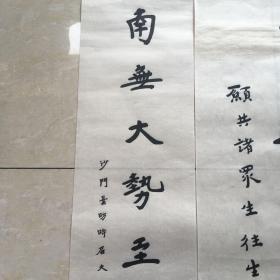 願共諸眾生往生
南無大勢至
沙門曇昉時居大